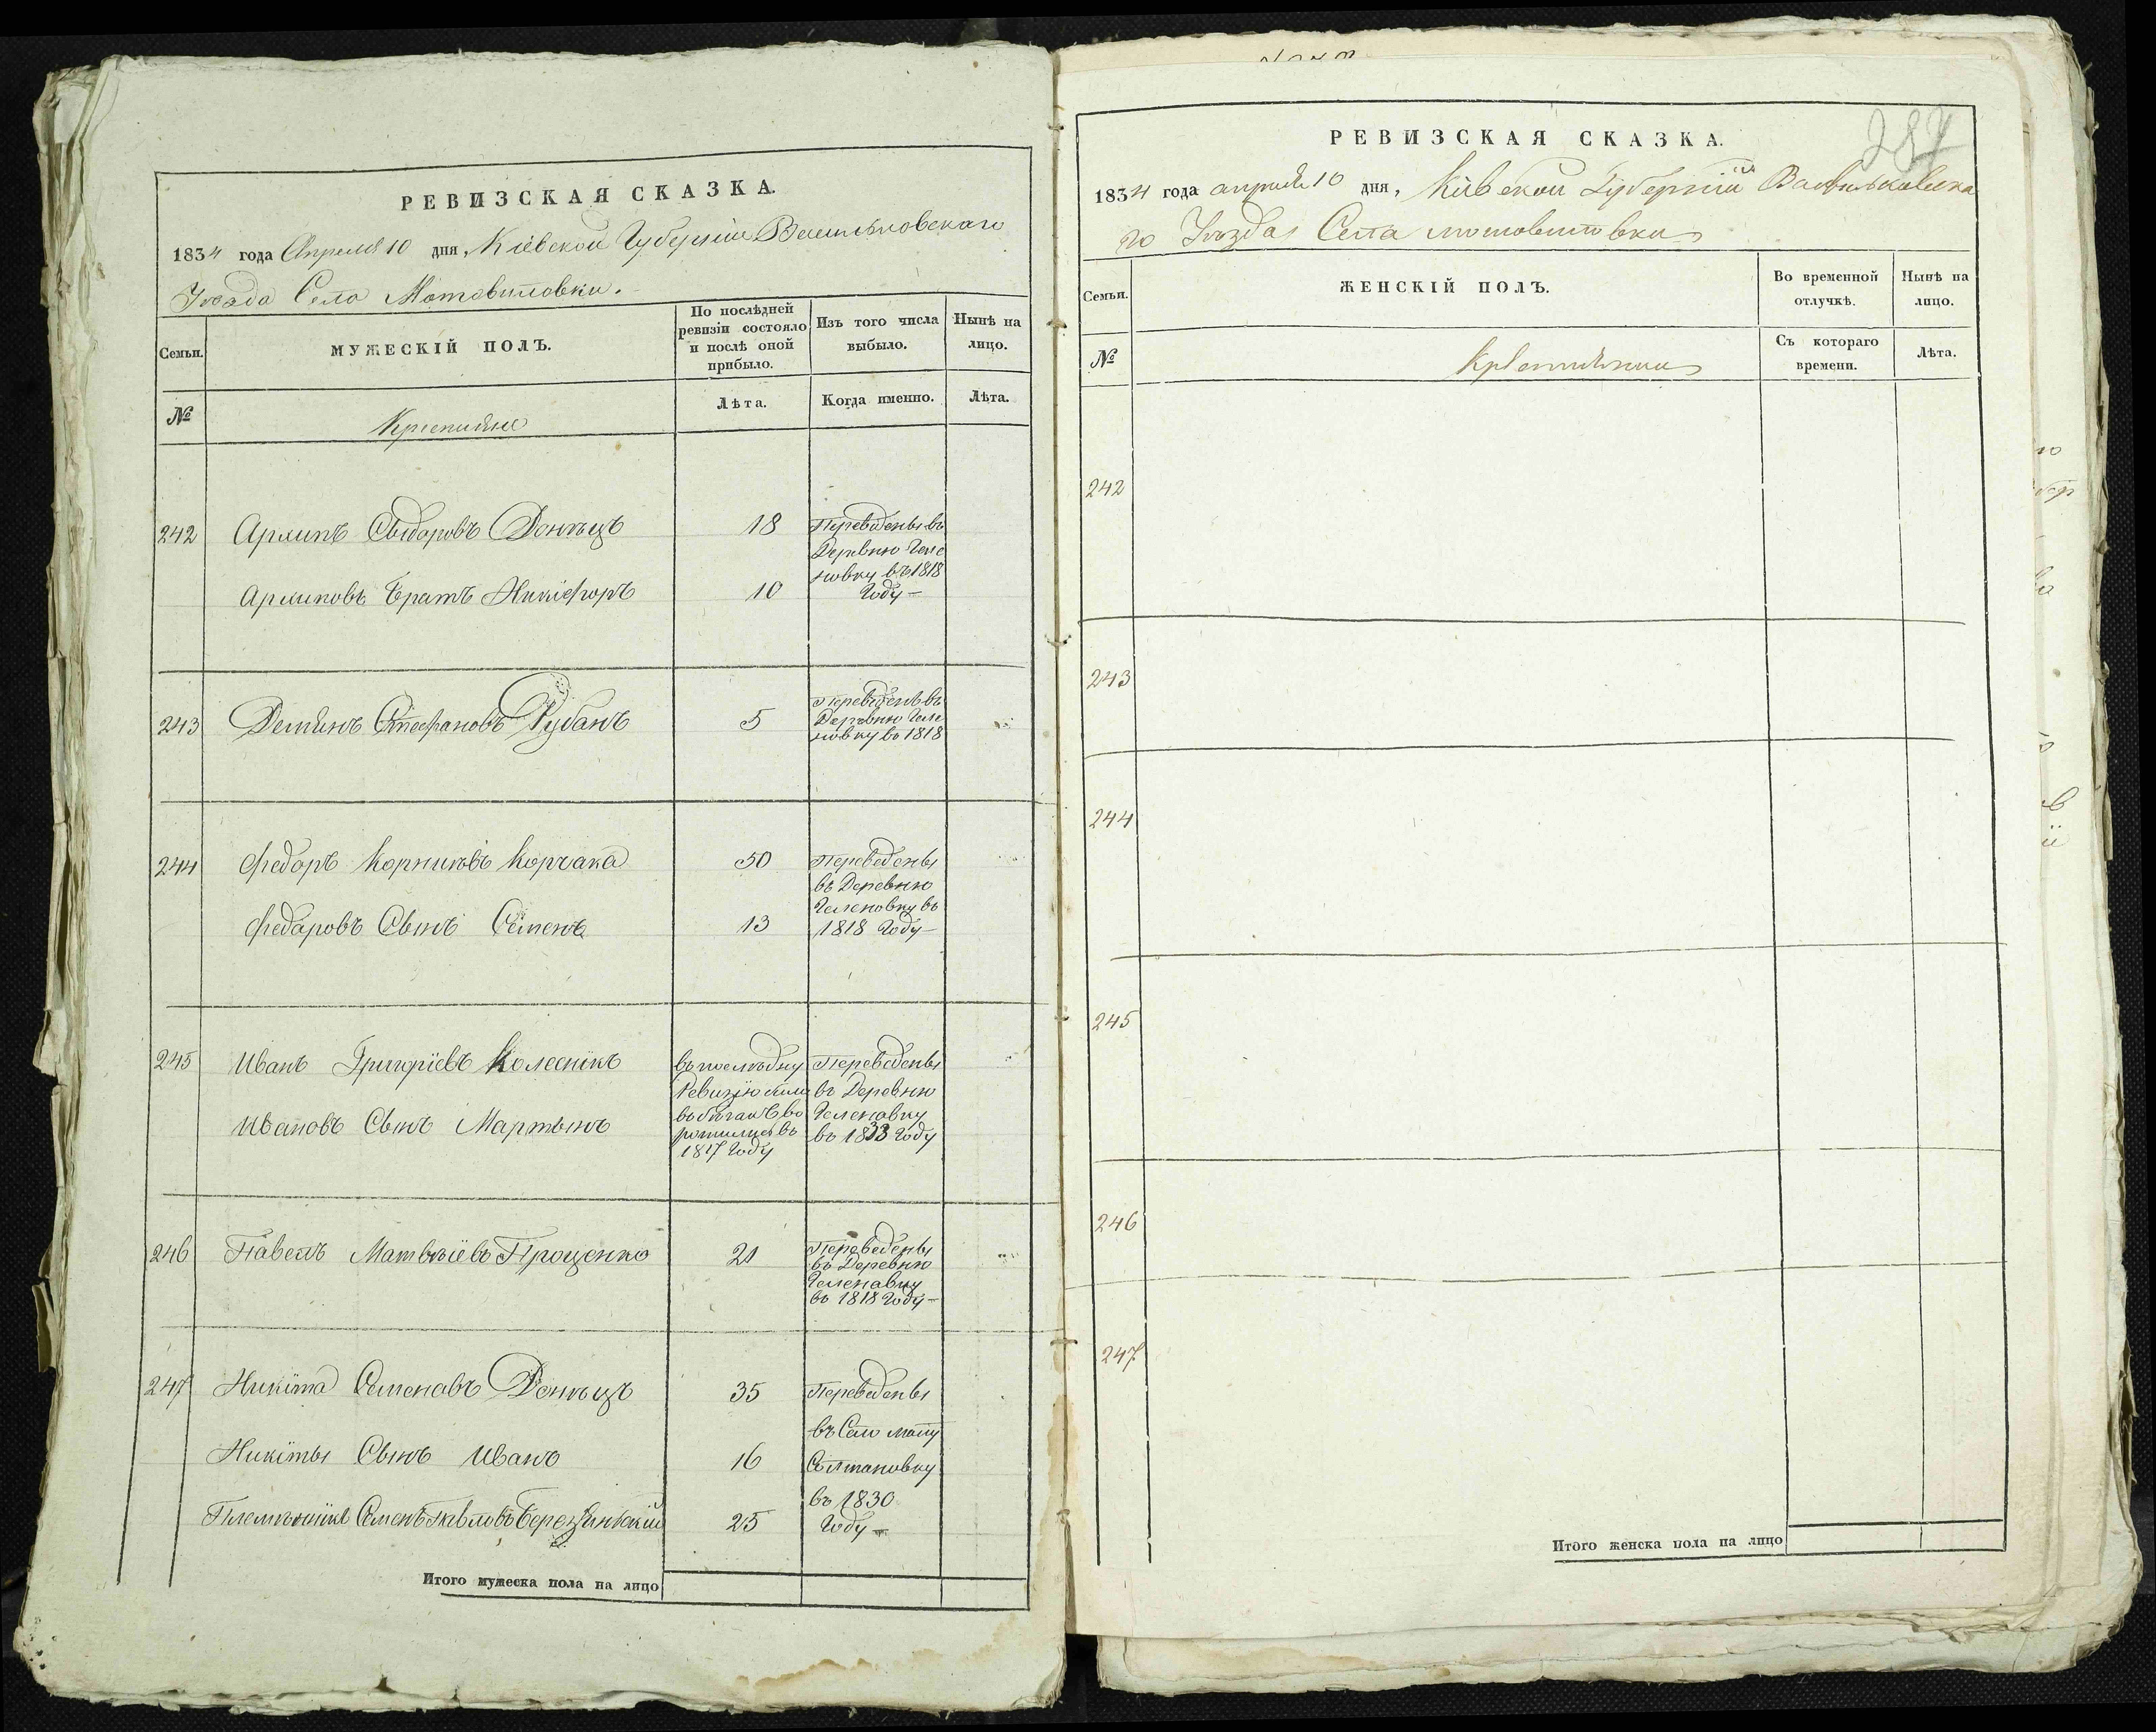 РЕВИЗСКАЯ СКАЗКА.
1834 года Апреля 10 дня, Кіевской Губерніи Васильковскаго
Уезда Села Мотовиловки.
Семьи.
МУЖЕСКІЙ ПОЛЪ.
По послѣдней ревизіи состояло и послѣ оной прибыло.
Изъ того числа выбыло.
Нынѣ на лицо.
№
Крестьяне
Лѣта.
Когда именно.
Лѣта.
242 Архипъ Сыдоровъ Донѣцъ 18 Переведены въ
Деревню Челе
новку въ 1818
Архиповъ Братъ Никіфоръ 10 Году
243 Демянъ Стефановъ Рубанъ 5 Переведенъ въ
Деревню Челе
новку во 1818
244 Федоръ Корниевъ Корчака 50 Переведены
въ Деревню
Челеновку въ
Федоровъ Сынъ Семенъ 13 1818 Году
245 Иванъ Григоріевъ Колеснікъ въ последну Переведены
Ревизію въ Деревню
Ивановъ Сынъ Мартынъ Челеновку
въ 1833 Году
1817 Году
246 Павелъ Матвѣіевъ Проценко 21 Переведены
въ Деревню
Челенавку
въ 1818 Году
247 Никіта Семенавъ Донѣцъ 35 Переведены
въ Село малу
Никіты Сынъ Иванъ 16 Солтановку
въ 1830
Племѣннікъ Семенъ Павловъ 25 Году
Итого мужеска пола на лицо
РЕВИЗСКАЯ СКАЗКА.
287
1834 года апреля 10 дня, Кіевской Губерніи Васильковска
го Уѣзда Села мотовиловки
Семьи.
ЖЕНСКІЙ ПОЛЪ.
Во временной отлучкѣ.
Нынѣ на лицо.
№
Крестьянки
Съ котораго времени.
Лѣта.
242
243
244
245
246
247
Итого женска пола на лицо